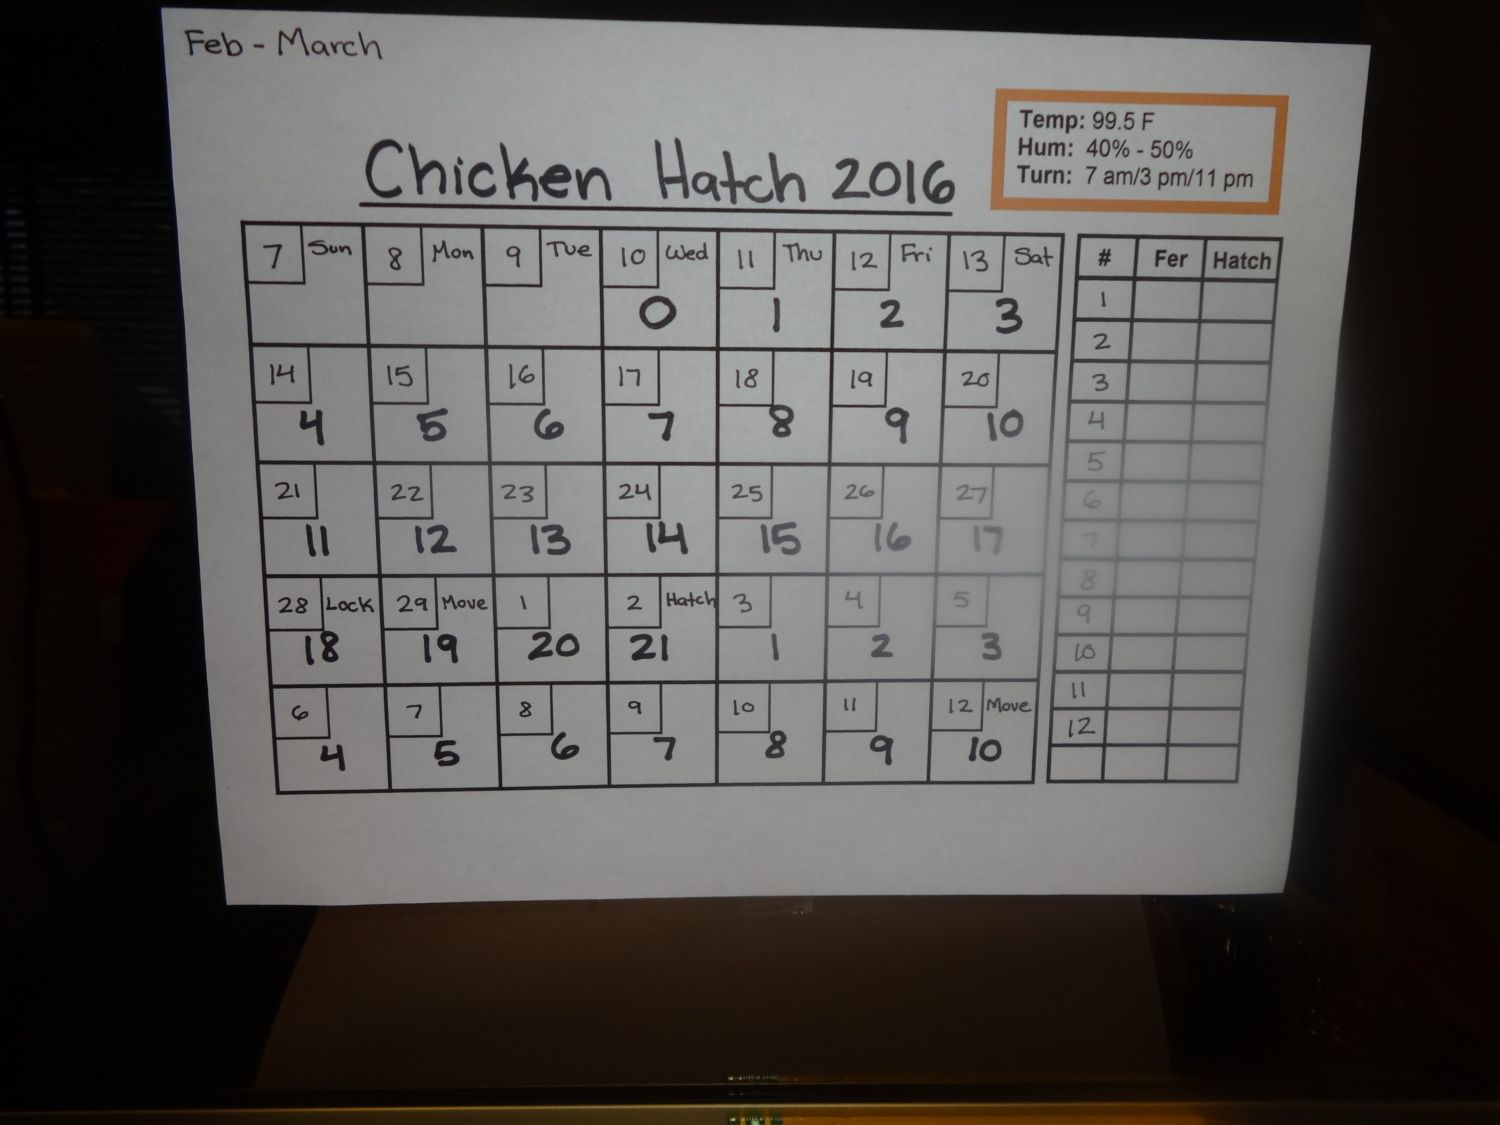 Feb - March
Chicken Hatch 2016
Temp: 99.5 F
Hum: 40% - 50%
Turn: 7 am/3 pm/11 pm
7 Sun 8 Mon 9 Tue 10 Wed 11 Thu 12 Fri 13 Sat
0 1 2 3
14 15 16 17 18 19 20
4 5 6 7 8 9 10
21 22 23 24 25 26 27
11 12 13 14 15 16 17
28 Lock 29 Move 1 2 Hatch 3 4 5
18 19 20 21 1 2 3
6 7 8 9 10 11 12 Move
4 5 6 7 8 9 10
# Fer Hatch
1
2
3
4
5
6
7
8
9
10
11
12